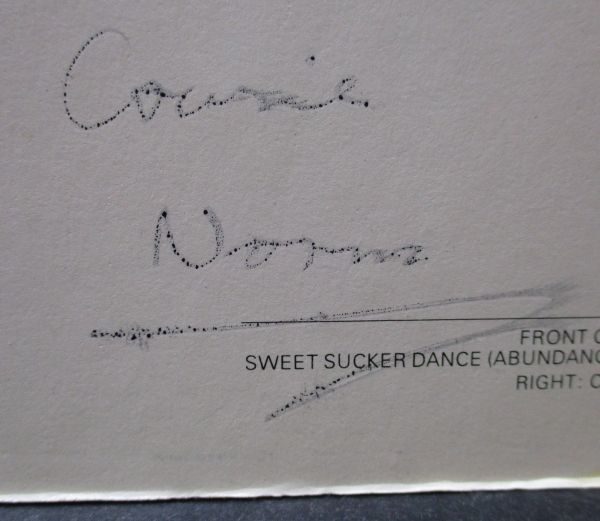 Norm
FRONT
SWEET SUCKER DANCE (ABUNDANC
RIGHT: